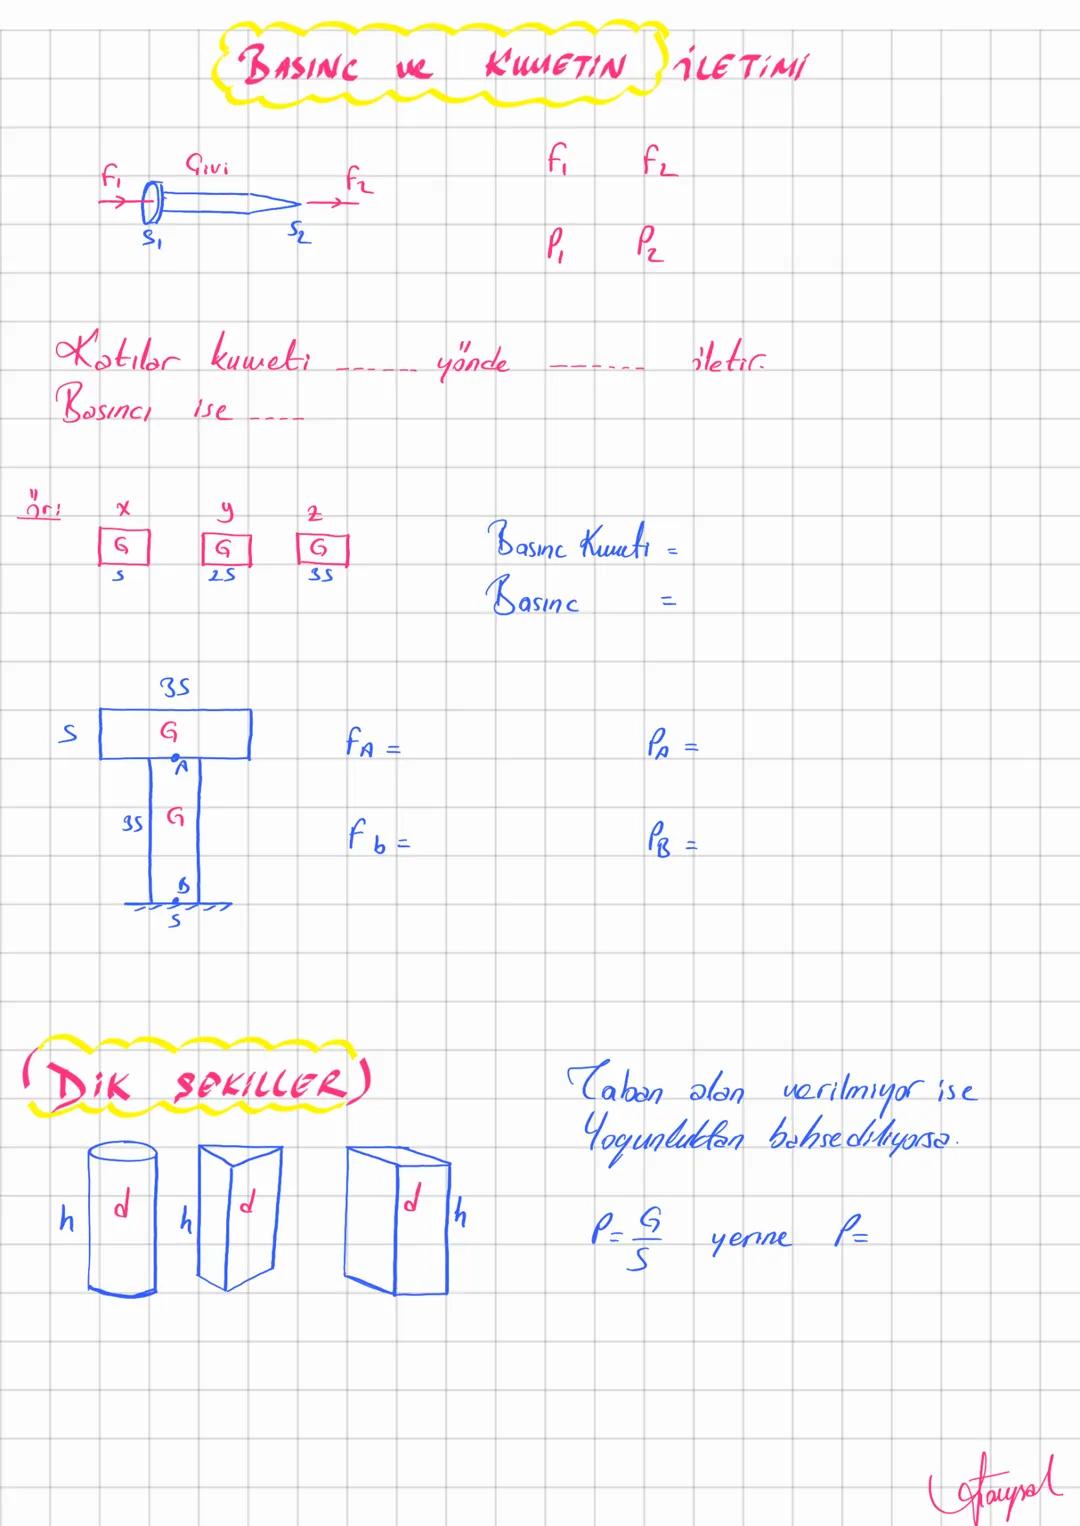 BASINC ve KUVVETİN İLETİMİ
Givi
F₁ F₂
S₁ S₂
F₁ F₂
P₁ P₂
Katılar kuvveti ------ yönde ------ iletir.
Basıncı ise ----
ör:
x y z
G G G
S 2S 3S
Basınc Kuvveti =
Basınc =
3S
S G
A
3S G
B
S
FA = PA =
Fb = PB =
(DİK ŞEKİLLER)
h d h d d h
Taban alan verilmiyor ise
Yogunluktan bahsediliyorsa.
P = G/S yerine P=